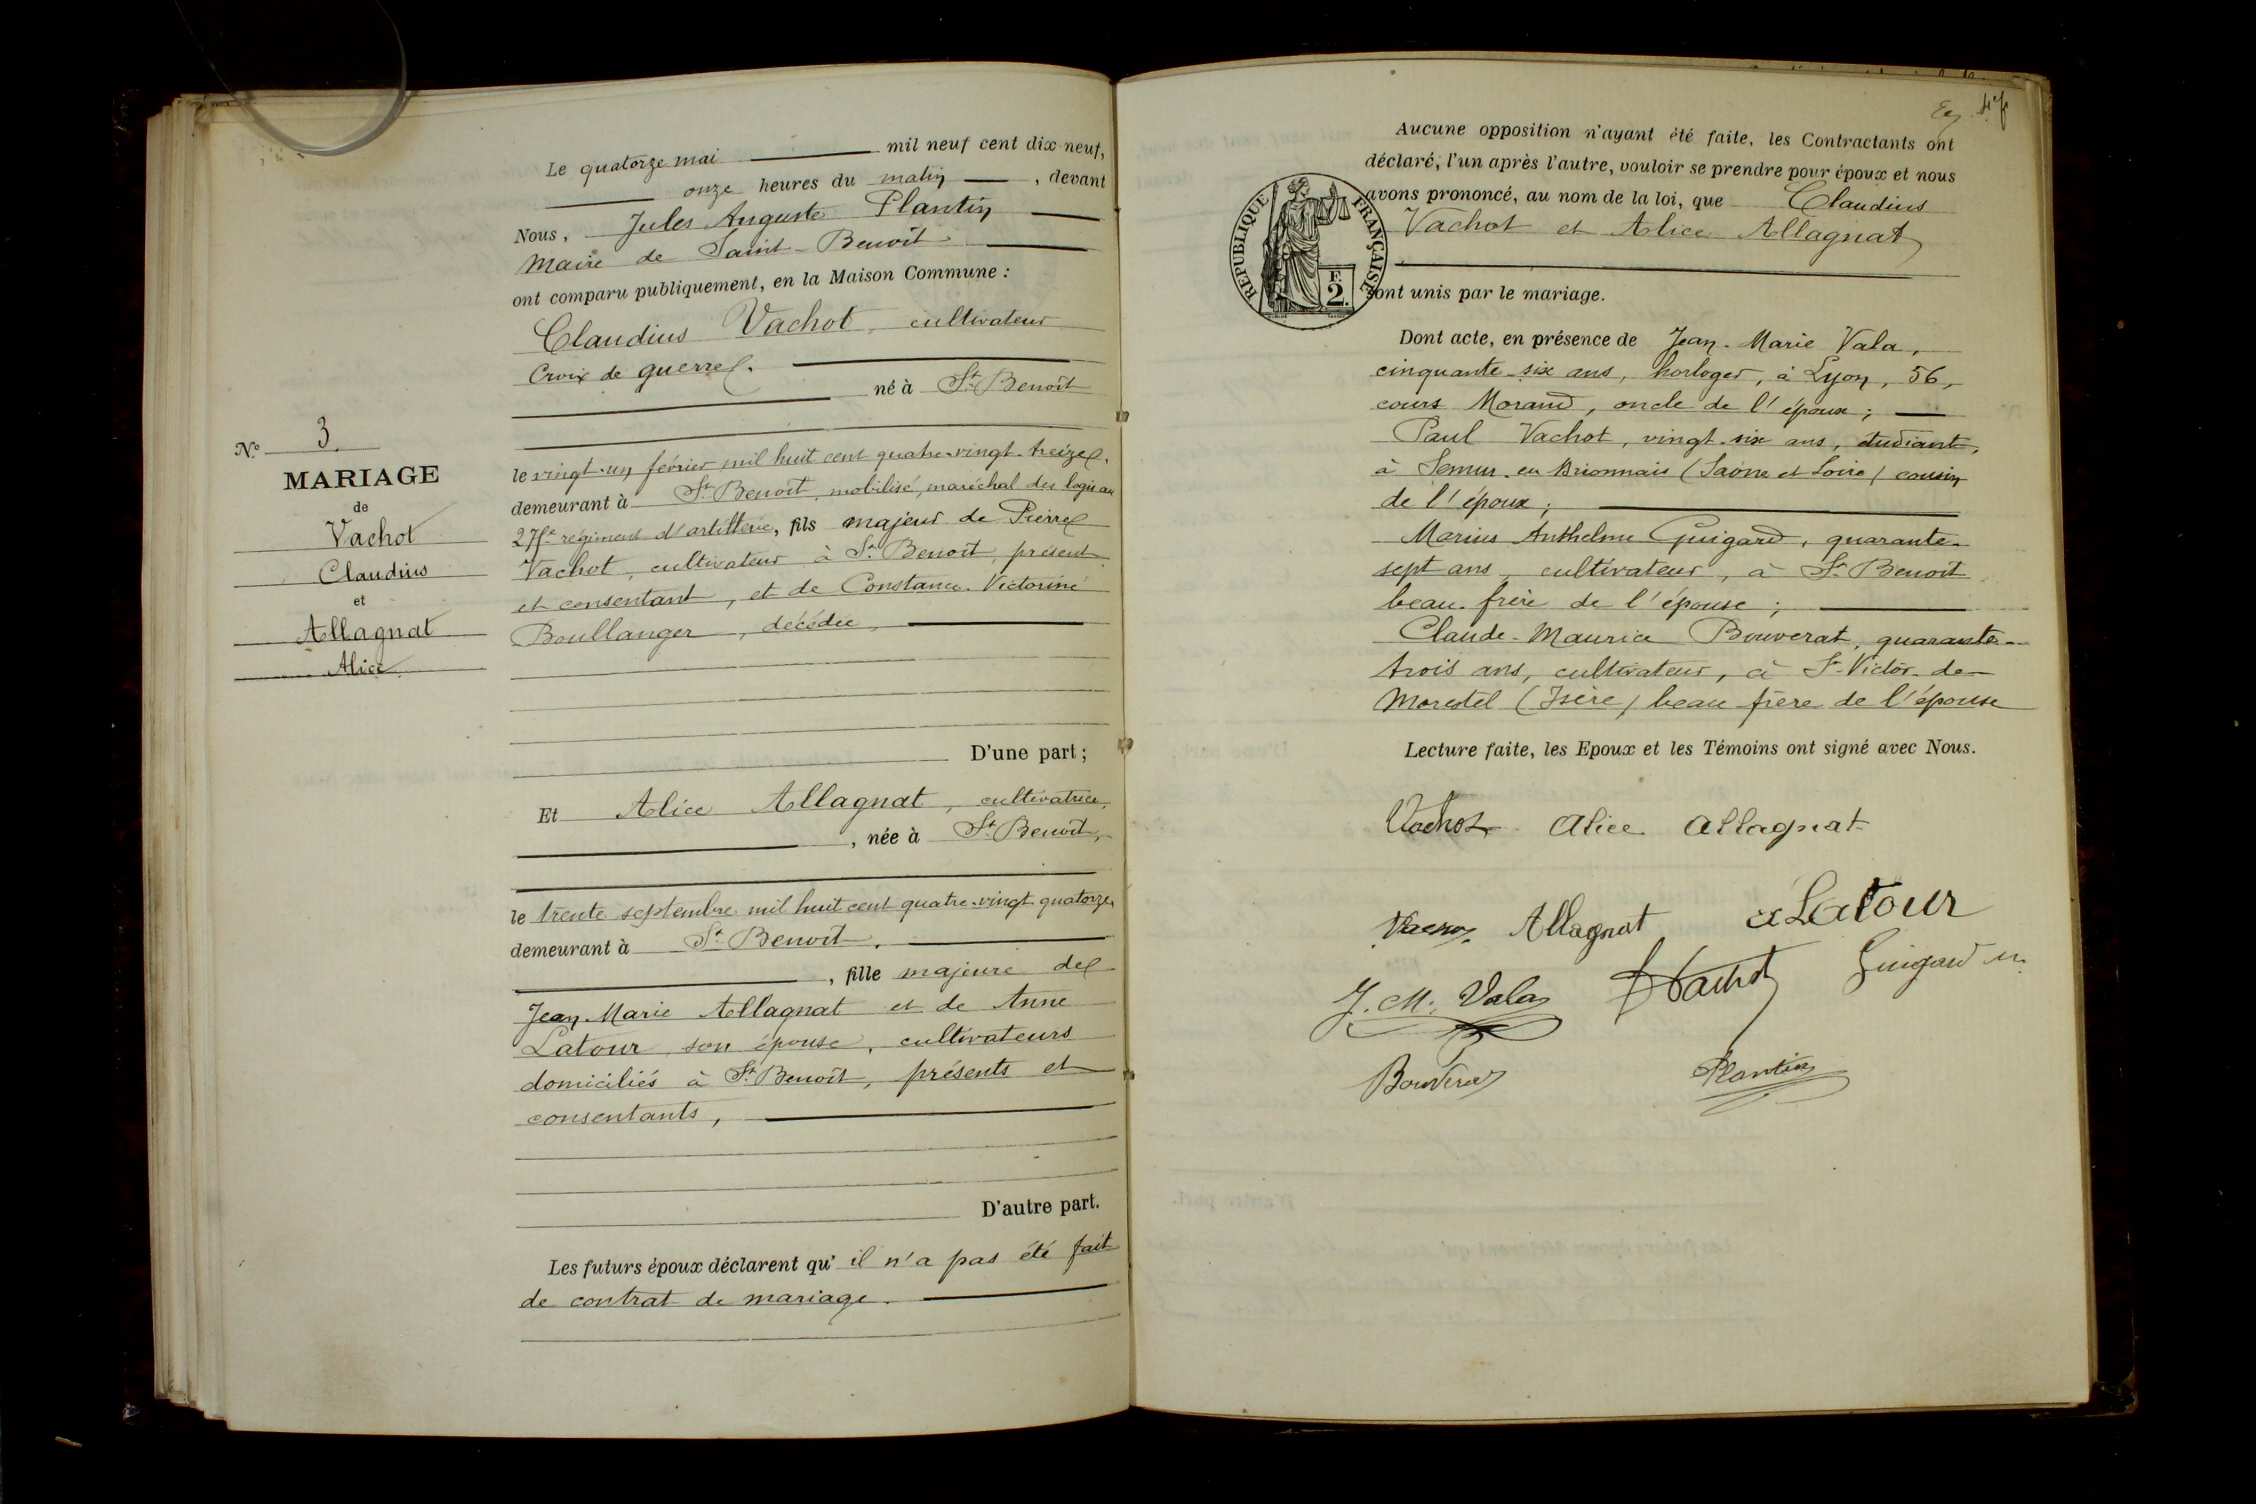 Le quatorze mai mil neuf cent dix neuf,
onze heures du matin , devant
Nous, Jules Auguste Plantin
Maire de Saint-Benoit
ont comparu publiquement, en la Maison Commune :
Claudius Vachot, cultivateur
Croix de guerre.
né à St Benoît
le vingt-un février mil huit cent quatre-vingt-treize,
demeurant à St Benoît, mobilisé, maréchal des logis au
régiment d'artillerie, fils majeur de Pierre
Vachot, cultivateur à St Benoît, présent
et consentant, et de Constance Victorine
Boullanger, décédée,
D'une part ;
Et Alice Allagnat, cultivatrice,
, née à St Benoît,
le trente septembre mil huit cent quatre-vingt quatorze,
demeurant à St Benoît.
, fille majeure de
Jean Marie Allagnat et de Anne
Latour son épouse, cultivateurs
domiciliés à St Benoît, présents et
consentants,
D'autre part.
Les futurs époux déclarent qu' il n'a pas été fait
de contrat de mariage.
No 3.
MARIAGE
de
Vachot
Claudius
et
Allagnat
Alice
Aucune opposition n'ayant été faite, les Contractants ont
déclaré, l'un après l'autre, vouloir se prendre pour époux et nous
avons prononcé, au nom de la loi, que Claudius
Vachot et Alice Allagnat
sont unis par le mariage.
RÉPUBLIQUE FRANÇAISE
F.
2.
Dont acte, en présence de Jean-Marie Vala,
cinquante-six ans, horloger, à Lyon, 56,
cours Morand, oncle de l'époux ;
Paul Vachot, vingt-six ans, étudiant,
à Semur-en-Brionnais (Saône et Loire) cousin
de l'époux ;
Marius Anthelme Guigard, quarante-
sept ans, cultivateur, à St Benoît
beau-frère de l'épouse ;
Claude-Maurice Bouverat, quarante-
trois ans, cultivateur, à St-Victor-de-
Morestel (Isère) beau frère de l'épouse
Lecture faite, les Epoux et les Témoins ont signé avec Nous.
Vachot Alice Allagnat
Vachot Allagnat Latour
J. M. Vala Vachot Guigard m
Bouverat Plantin